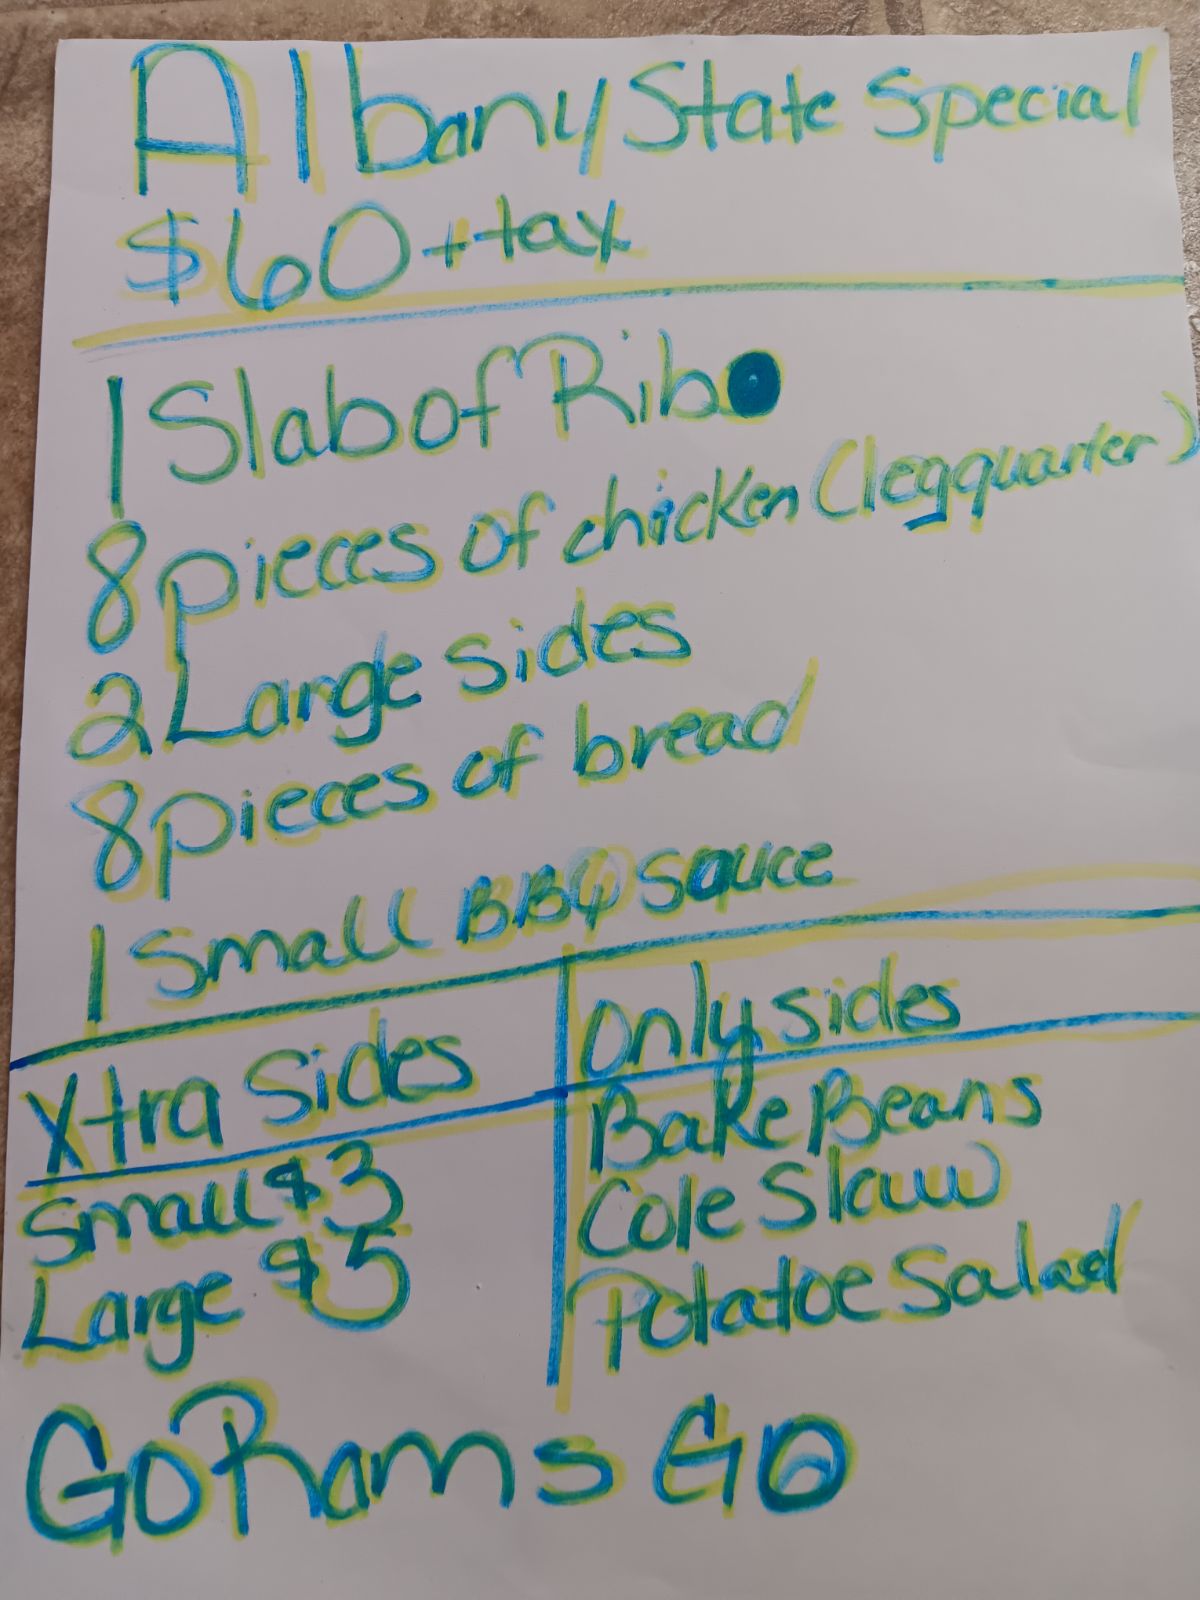 Albany State Special
$60 + tax
1 Slab of Rib
8 pieces of chicken (leg quarter)
2 Large sides
8 pieces of bread
1 small BBQ sauce
Xtra Sides
Small $3
Large $5
Only sides
Bake Beans
Cole Slaw
Potatoe Salad
Go Rams Go